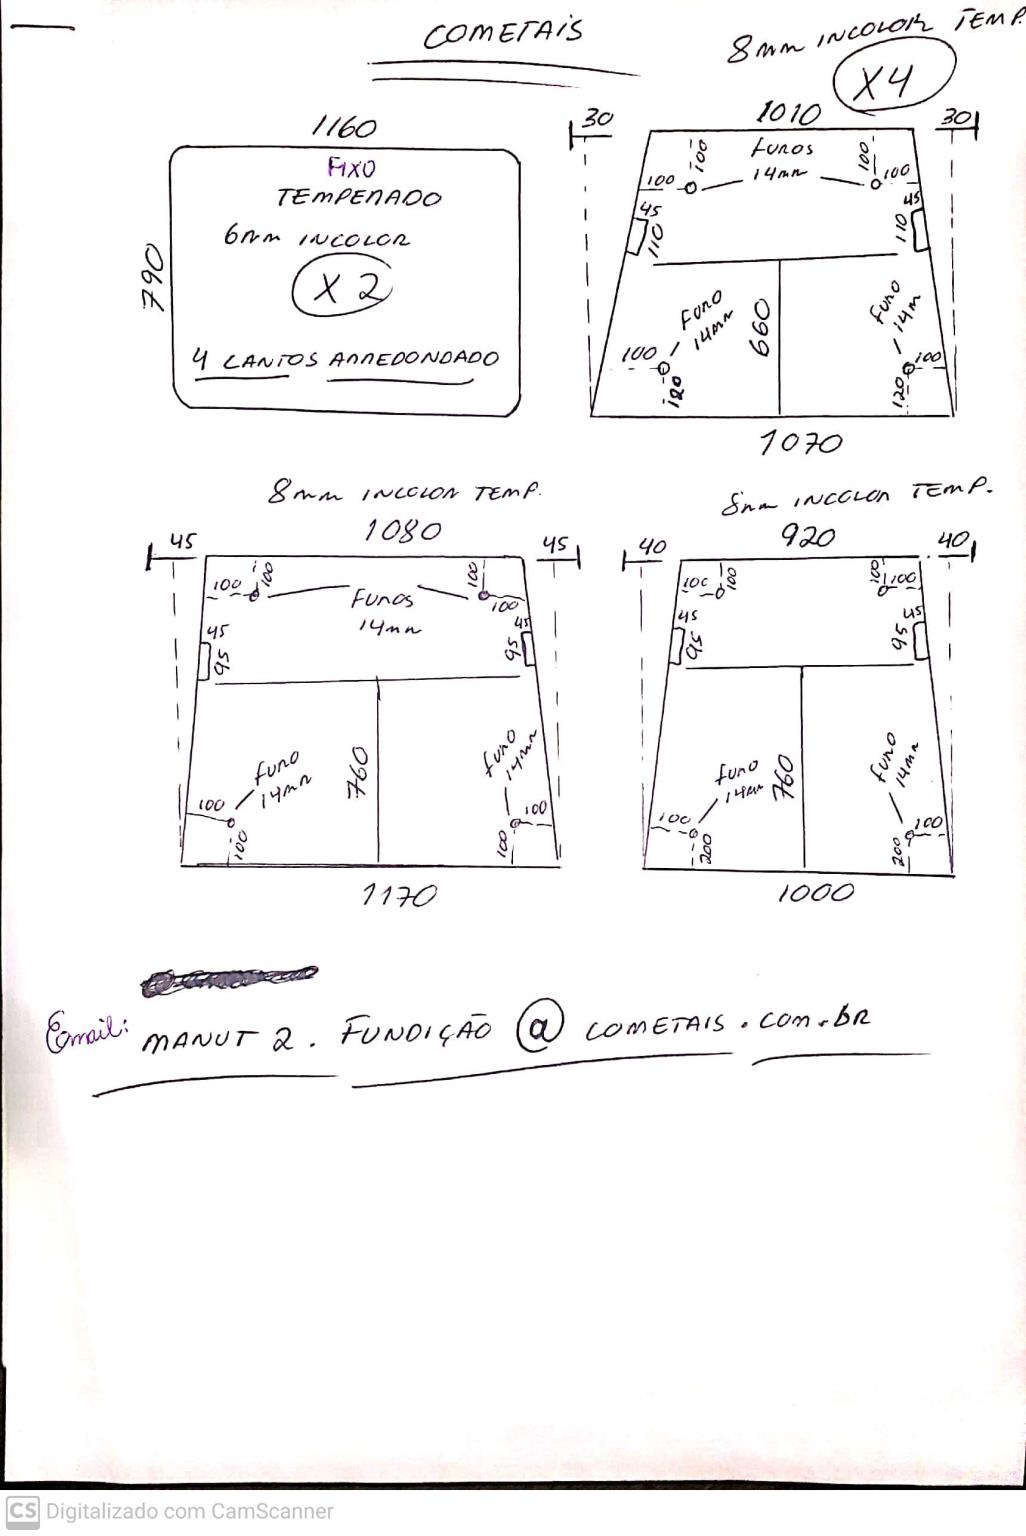 COMETAIS
8mm INCOLOR TEMP.
X4
1160
FIXO
TEMPERADO
6mm INCOLOR
X2
4 CANTOS ARREDONDADO
790
30
1010
30
FUROS
14mm
100
100
100
100
45
110
45
110
FURO
14mm
660
FURO
14m
100
120
100
120
1070
8mm INCOLOR TEMP.
1080
45
45
100
100
100
100
FUROS
14mm
45
95
45
95
FURO
14mm
760
FURO
14mm
100
100
100
100
1170
8mm INCOLOR TEMP.
920
40
40
100
100
100
100
45
95
45
95
FURO
14mm
760
FURO
14mm
100
200
100
200
1000
Email: MANUT 2. FUNDIÇÃO @ COMETAIS.COM.BR
CS Digitalizado com CamScanner